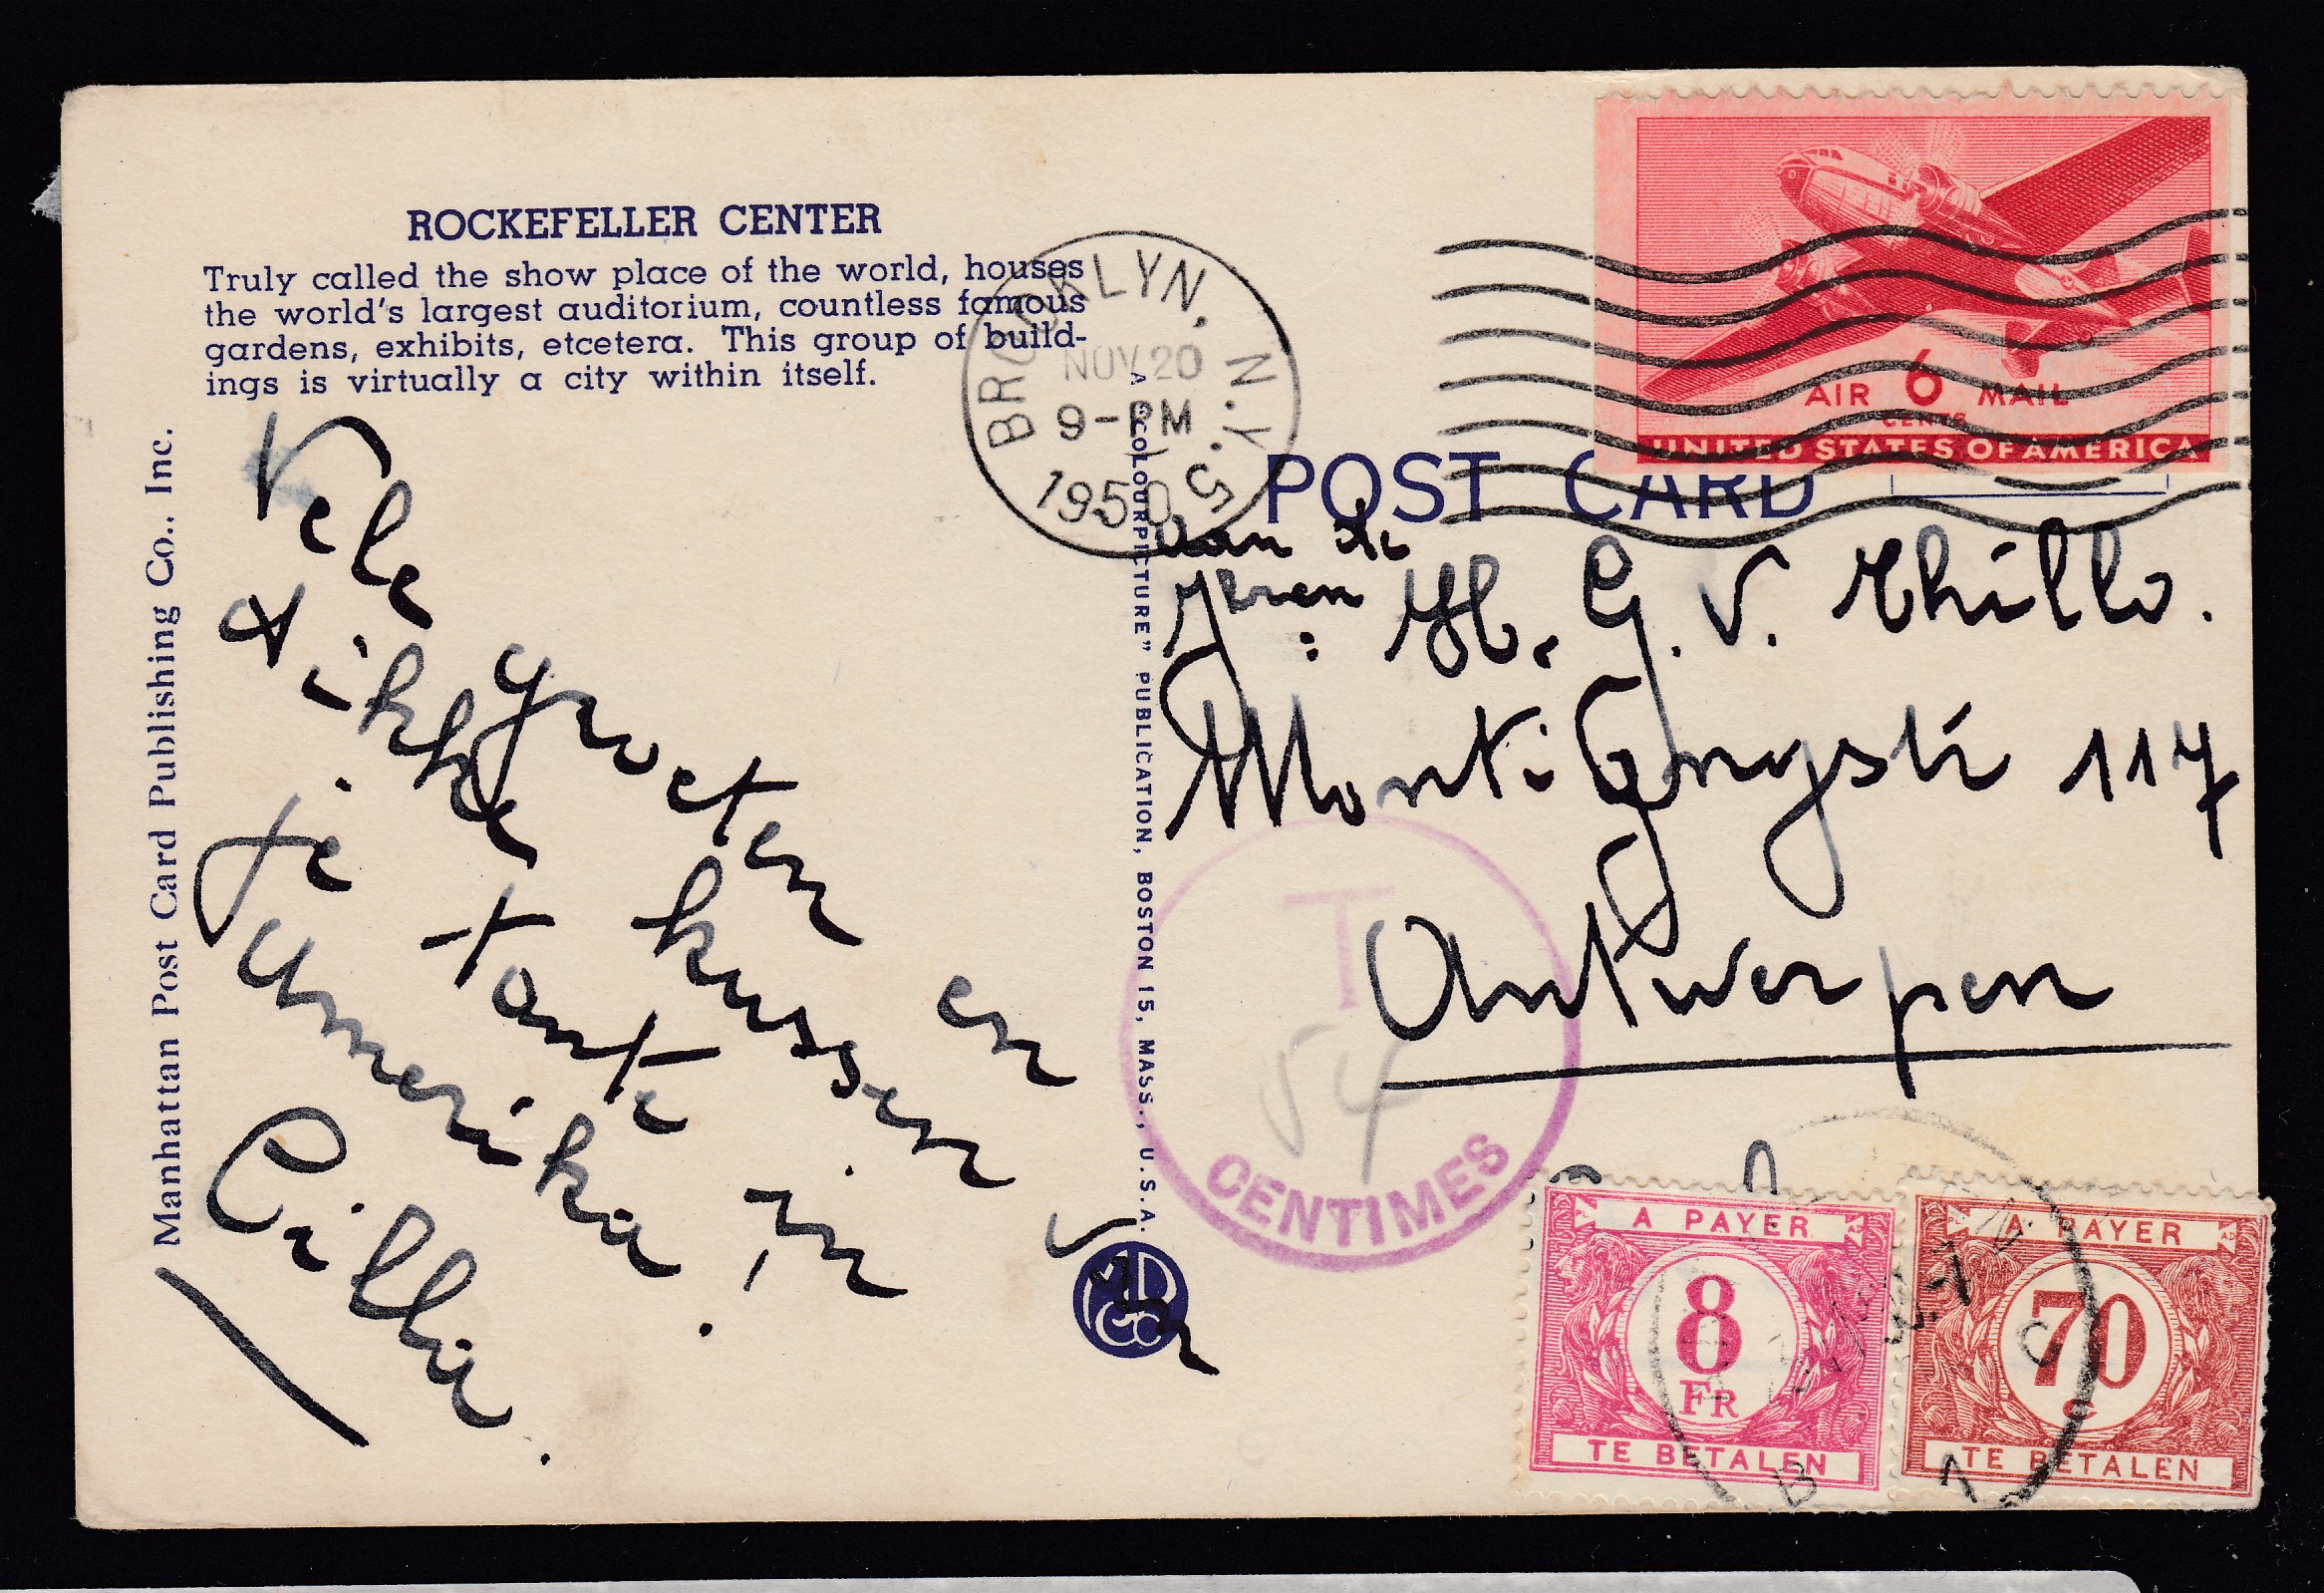 ROCKEFELLER CENTER
Truly called the show place of the world, houses
the world's largest auditorium, countless famous
gardens, exhibits, etcetera. This group of build-
ings is virtually a city within itself.
Manhattan Post Card Publishing Co., Inc.
Vele groeten en
dikke kussen van
je tante in
Amerika.
Cillia.
A "COLOURPICTURE" PUBLICATION, BOSTON 15, MASS., U.S.A.
BROOKLYN, N.Y. 5
NOV 20
9-PM
1950
AIR 6 MAIL
CENTS
UNITED STATES OF AMERICA
POST CARD
Aan de
Hren : H. G. V.
117
Antwerpen
T
54
CENTIMES
A PAYER
8
FR
TE BETALEN
A PAYER
70
C
TE BETALEN